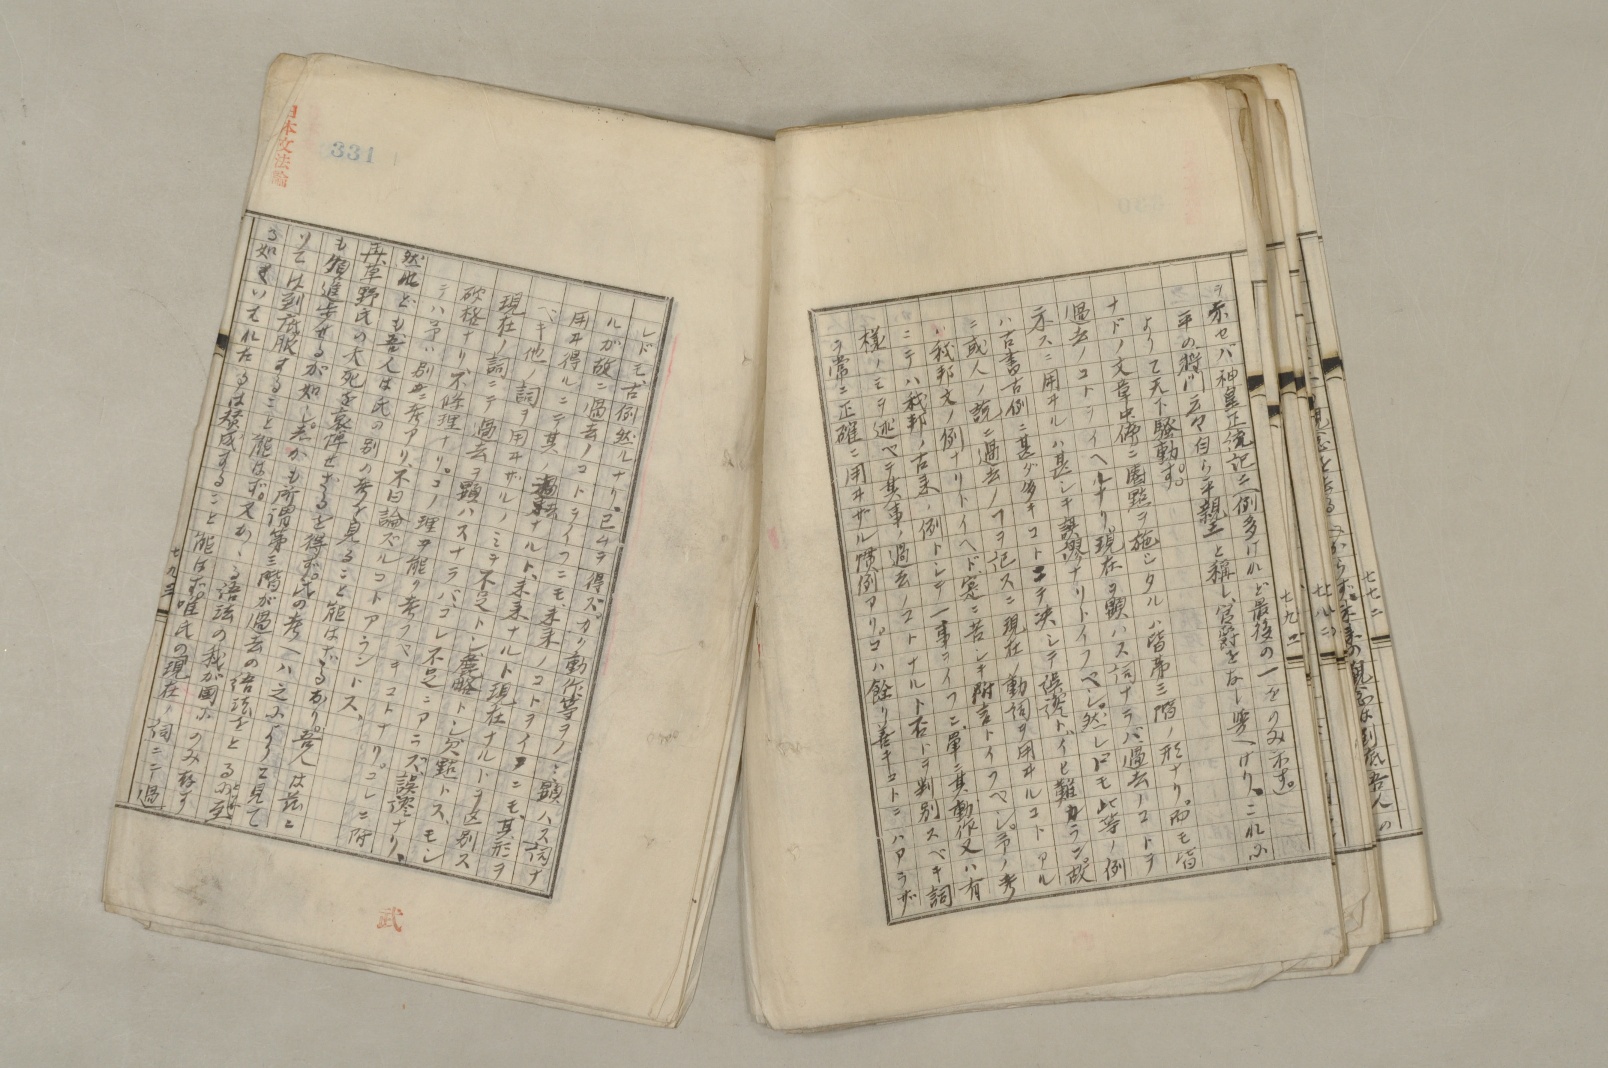 ラ示セバ神皇正統記ニ例多けれど最後の一をのみ示す。
平の将門云々自ら平親王と稱し、官爵をなし與へけり。これに
よりて天下騒動す。
ナドノ文章中傍ニ圏點ヲ施シタルハ皆第三階ノ形ナリ。而モ皆
過去ノコトヲイヘルナリ現在ヲ顯ハス詞ナラバ過去ノコトヲ
示スニ用ヰルハ甚シキ誤謬ナリトイフベシ。然レドモ此等ノ例
ハ古書古例ニ甚ダ多キコトニテ決シテ誤謬トイヒ難カラン。故
ニ或人ノ説ニ過去ノヿヲ記スニ現在ノ動詞ヲ用ヰルコトアル
ハ我邦文ノ例ナリトイヘド寔ニ苦シキ附言トイフベシ。予ノ考
ニテハ我邦ノ古来ノ例トシテ一事ヲイフニ、單ニ其動作又ハ有
様ノミヲ述ベテ其事ノ過去ノコトナルト否トヲ判別スベキ詞
ヲ常ニ正確ニ用ヰザル慣例アリ。コハ餘リ善キコトニハアラザ
日本文法論
331
レドモ、古例然ルナリ。已ムヲ得ズ、カク動作等ヲノミ顯ハス詞ナ
ルガ故ニ過去ノコトヲイフニモ、未来ノコトヲイフニモ其形ヲ
用ヰ得ルニテ其ノ過去ナルト、未来ナルト現在ナルトヲ区別ス
ベキ他ノ詞ヲ用ヰザルノミヲ不足トシ麁略トシ欠點トス、モシ
現在ノ詞ニテ過去ヲ顯ハスナラバコレ不足ニアラズ誤謬ナリ、
破格ナリ、不條理ナリ。コノ理ヲ能ク考フベキコトナリ。コレニ附
テハ予ハ別ニ考アリ、不日論ズルコトアラントス、
然れども吾人は氏の別の考を見ること能はざるなり。吾人は茲に
再草野氏の大死を哀悼せざるを得ず。氏の考へハ之によりて見て
も頗進歩せるが如し。しかも所謂第三階が過去の語法をとるに至
りては到底服すること能はず。又かゝる語法の我が國にのみ存す
る如くいはれたるは賛成すること能はず。唯氏の現在ノ詞ニテ過
七九三
武
七九二
七七二